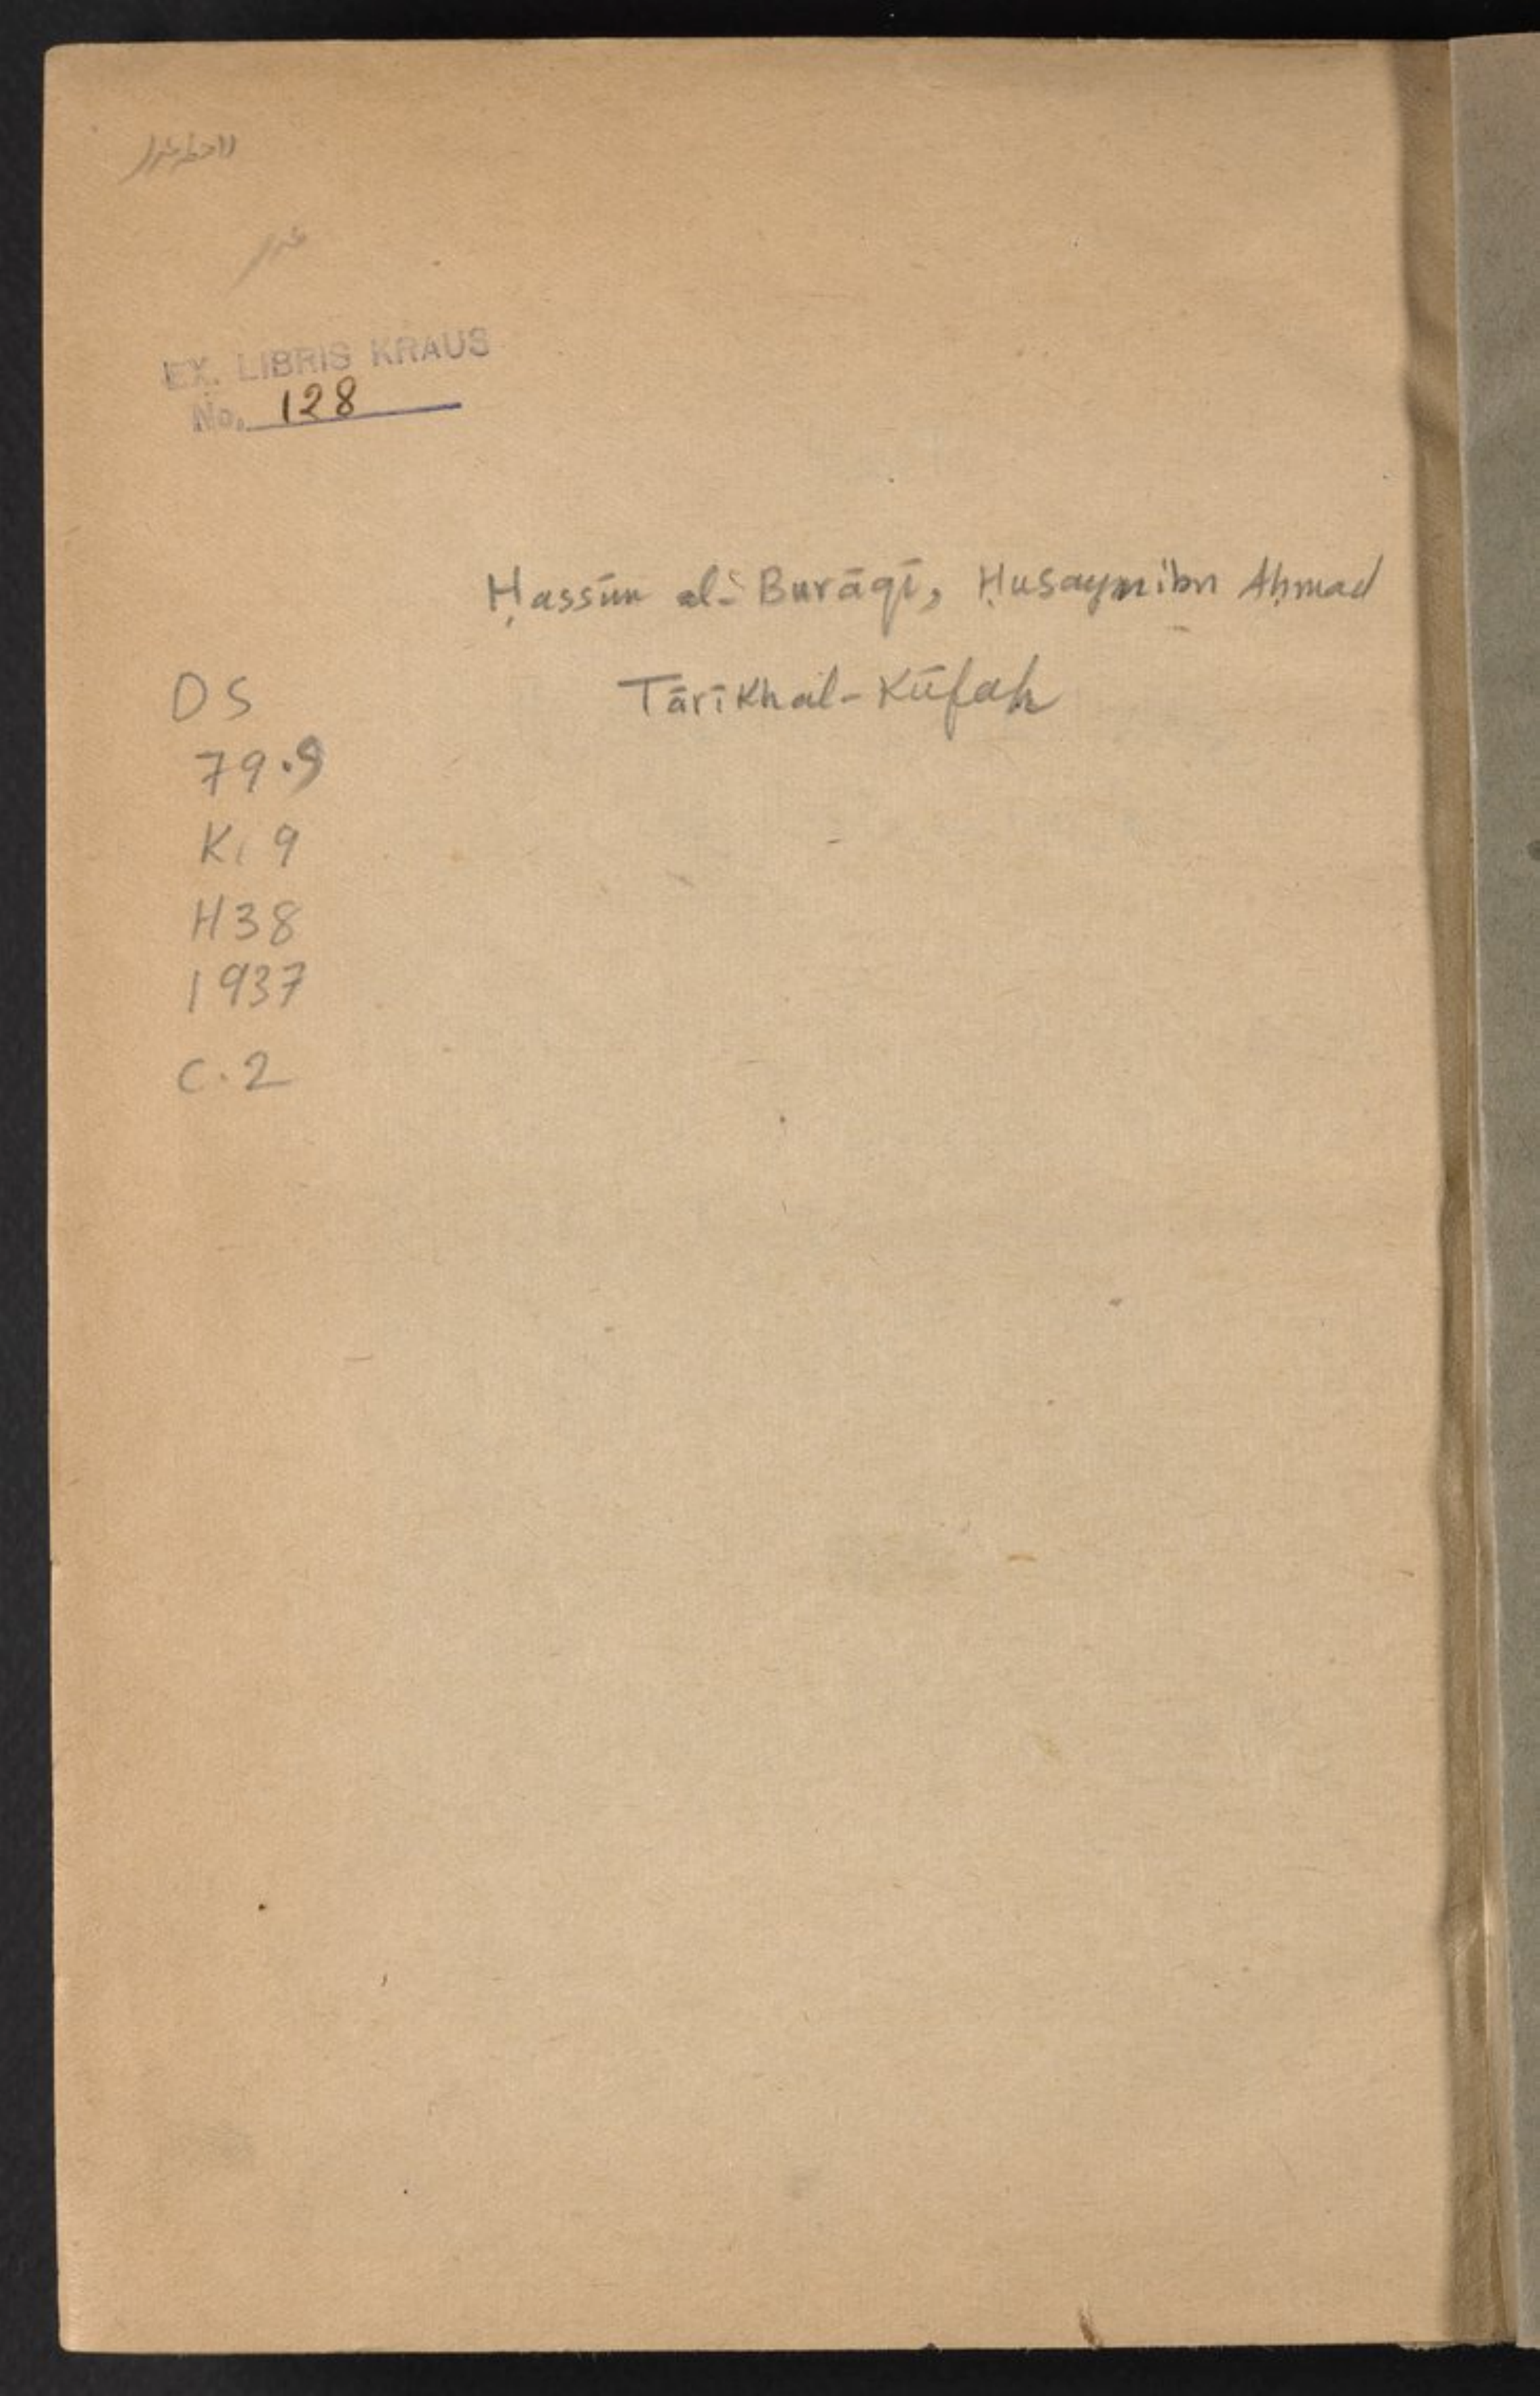 EX. LIBRIS KRAUS
No. 128
Ḥassūn al-Burāqī, Ḥusayn ibn Aḥmad
Tārīkh al-Kūfah
DS
79.9
K, 9
H38
1937
C.2